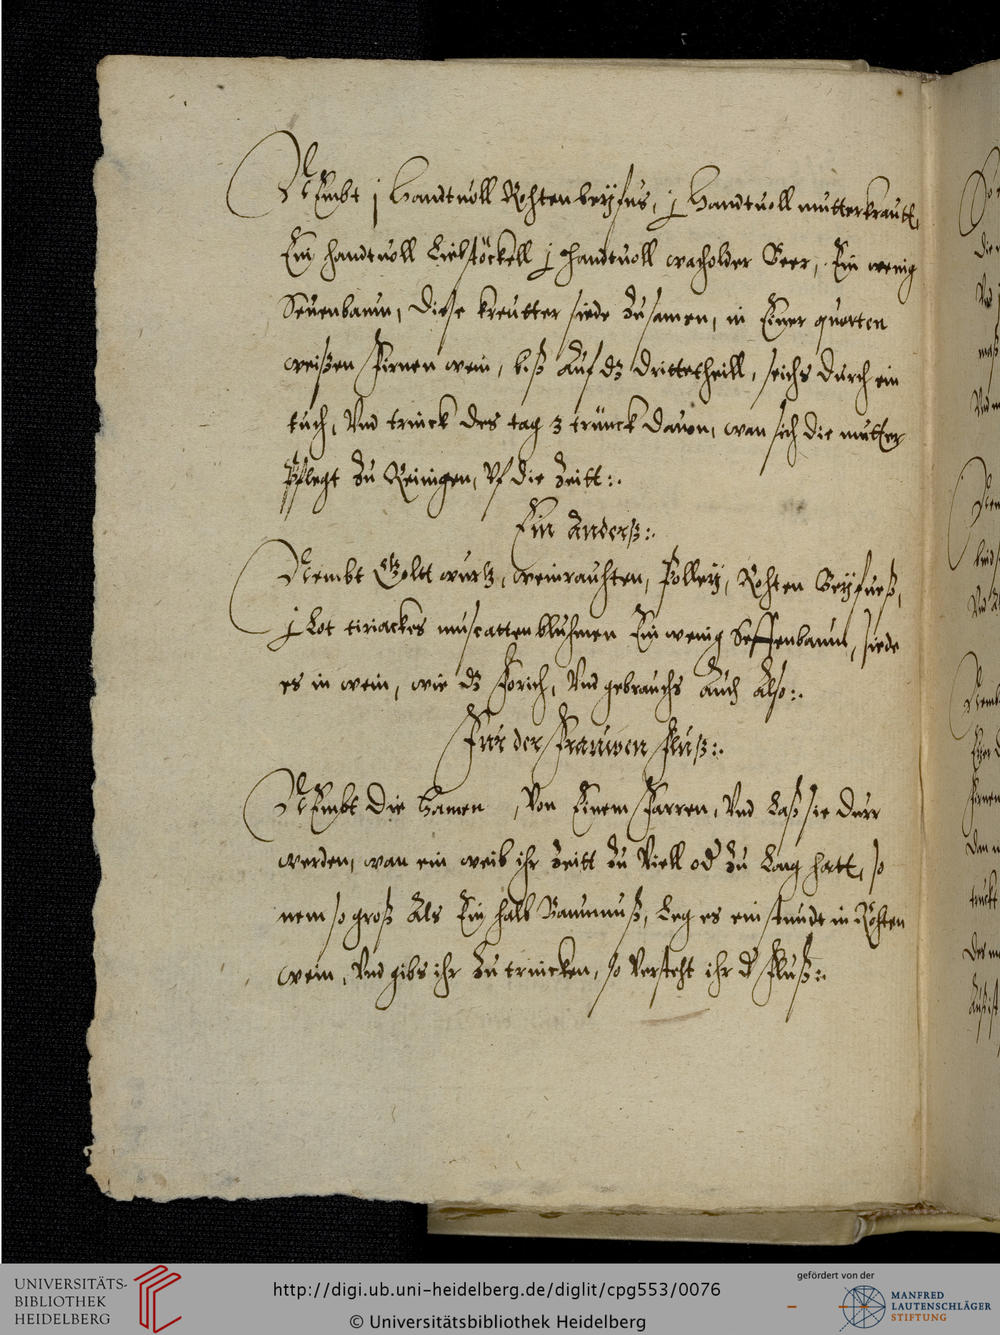 NEmbt j Handtuoll Rohten beÿfus, j Handtuoll mutterkrautt,
Ein handtvoll Liebstöckell j handtuoll wacholder Beer, Ein wenig
Seuenbaum, diese kreutter siede Zusamen, in Einer quarten
weißen Firnen wein, biß Auf dz drittetheill, seichs durch ein
tuch, Vnd trinck des tag 3 trünck dauon, wan sich die mutter
Pflegt zu Reinigen, Vf die Zeitt :.
Ein Anderß :.
Nembt Goltt wurtz, weinrauhten, Polleÿ, Rohten Beÿfueß,
j Lot tiriackes muscatten bluhmen Ein wenig Seffenbaum, siede
es in wein, wie dz Forich, Vnd gebrauchs Auch Also :.
Fur der Frauwen Fluß :.
NEmbt die Hamen, Von Einem Farren, Vnd Laß sie durr
werden, wan ein weib ihr Zeitt zu Viell od zu Lang hatt, so
nem so groß Als Ein halb Baumnuß, Leg es ein stundt in Rohten
wein, Vnd gibs ihr Zu trincken, so Versteht ihr d Fluß :.
UNIVERSITÄTS-
BIBLIOTHEK
HEIDELBERG
http://digi.ub.uni-heidelberg.de/diglit/cpg553/0076
© Universitätsbibliothek Heidelberg
gefördert von der
MANFRED
LAUTENSCHLÄGER
STIFTUNG